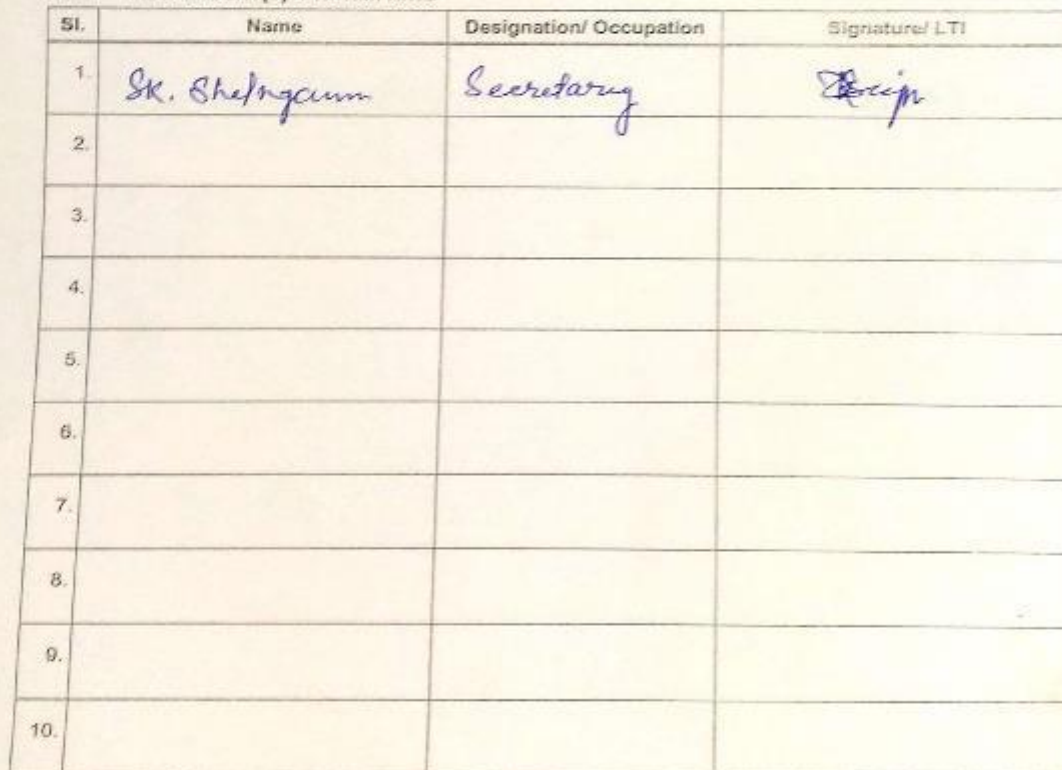 Sl. Name Designation/ Occupation Signature/ LTI
1. SK. Shelngaum Secretary
2.
3.
4.
5.
6.
7.
8.
9.
10.